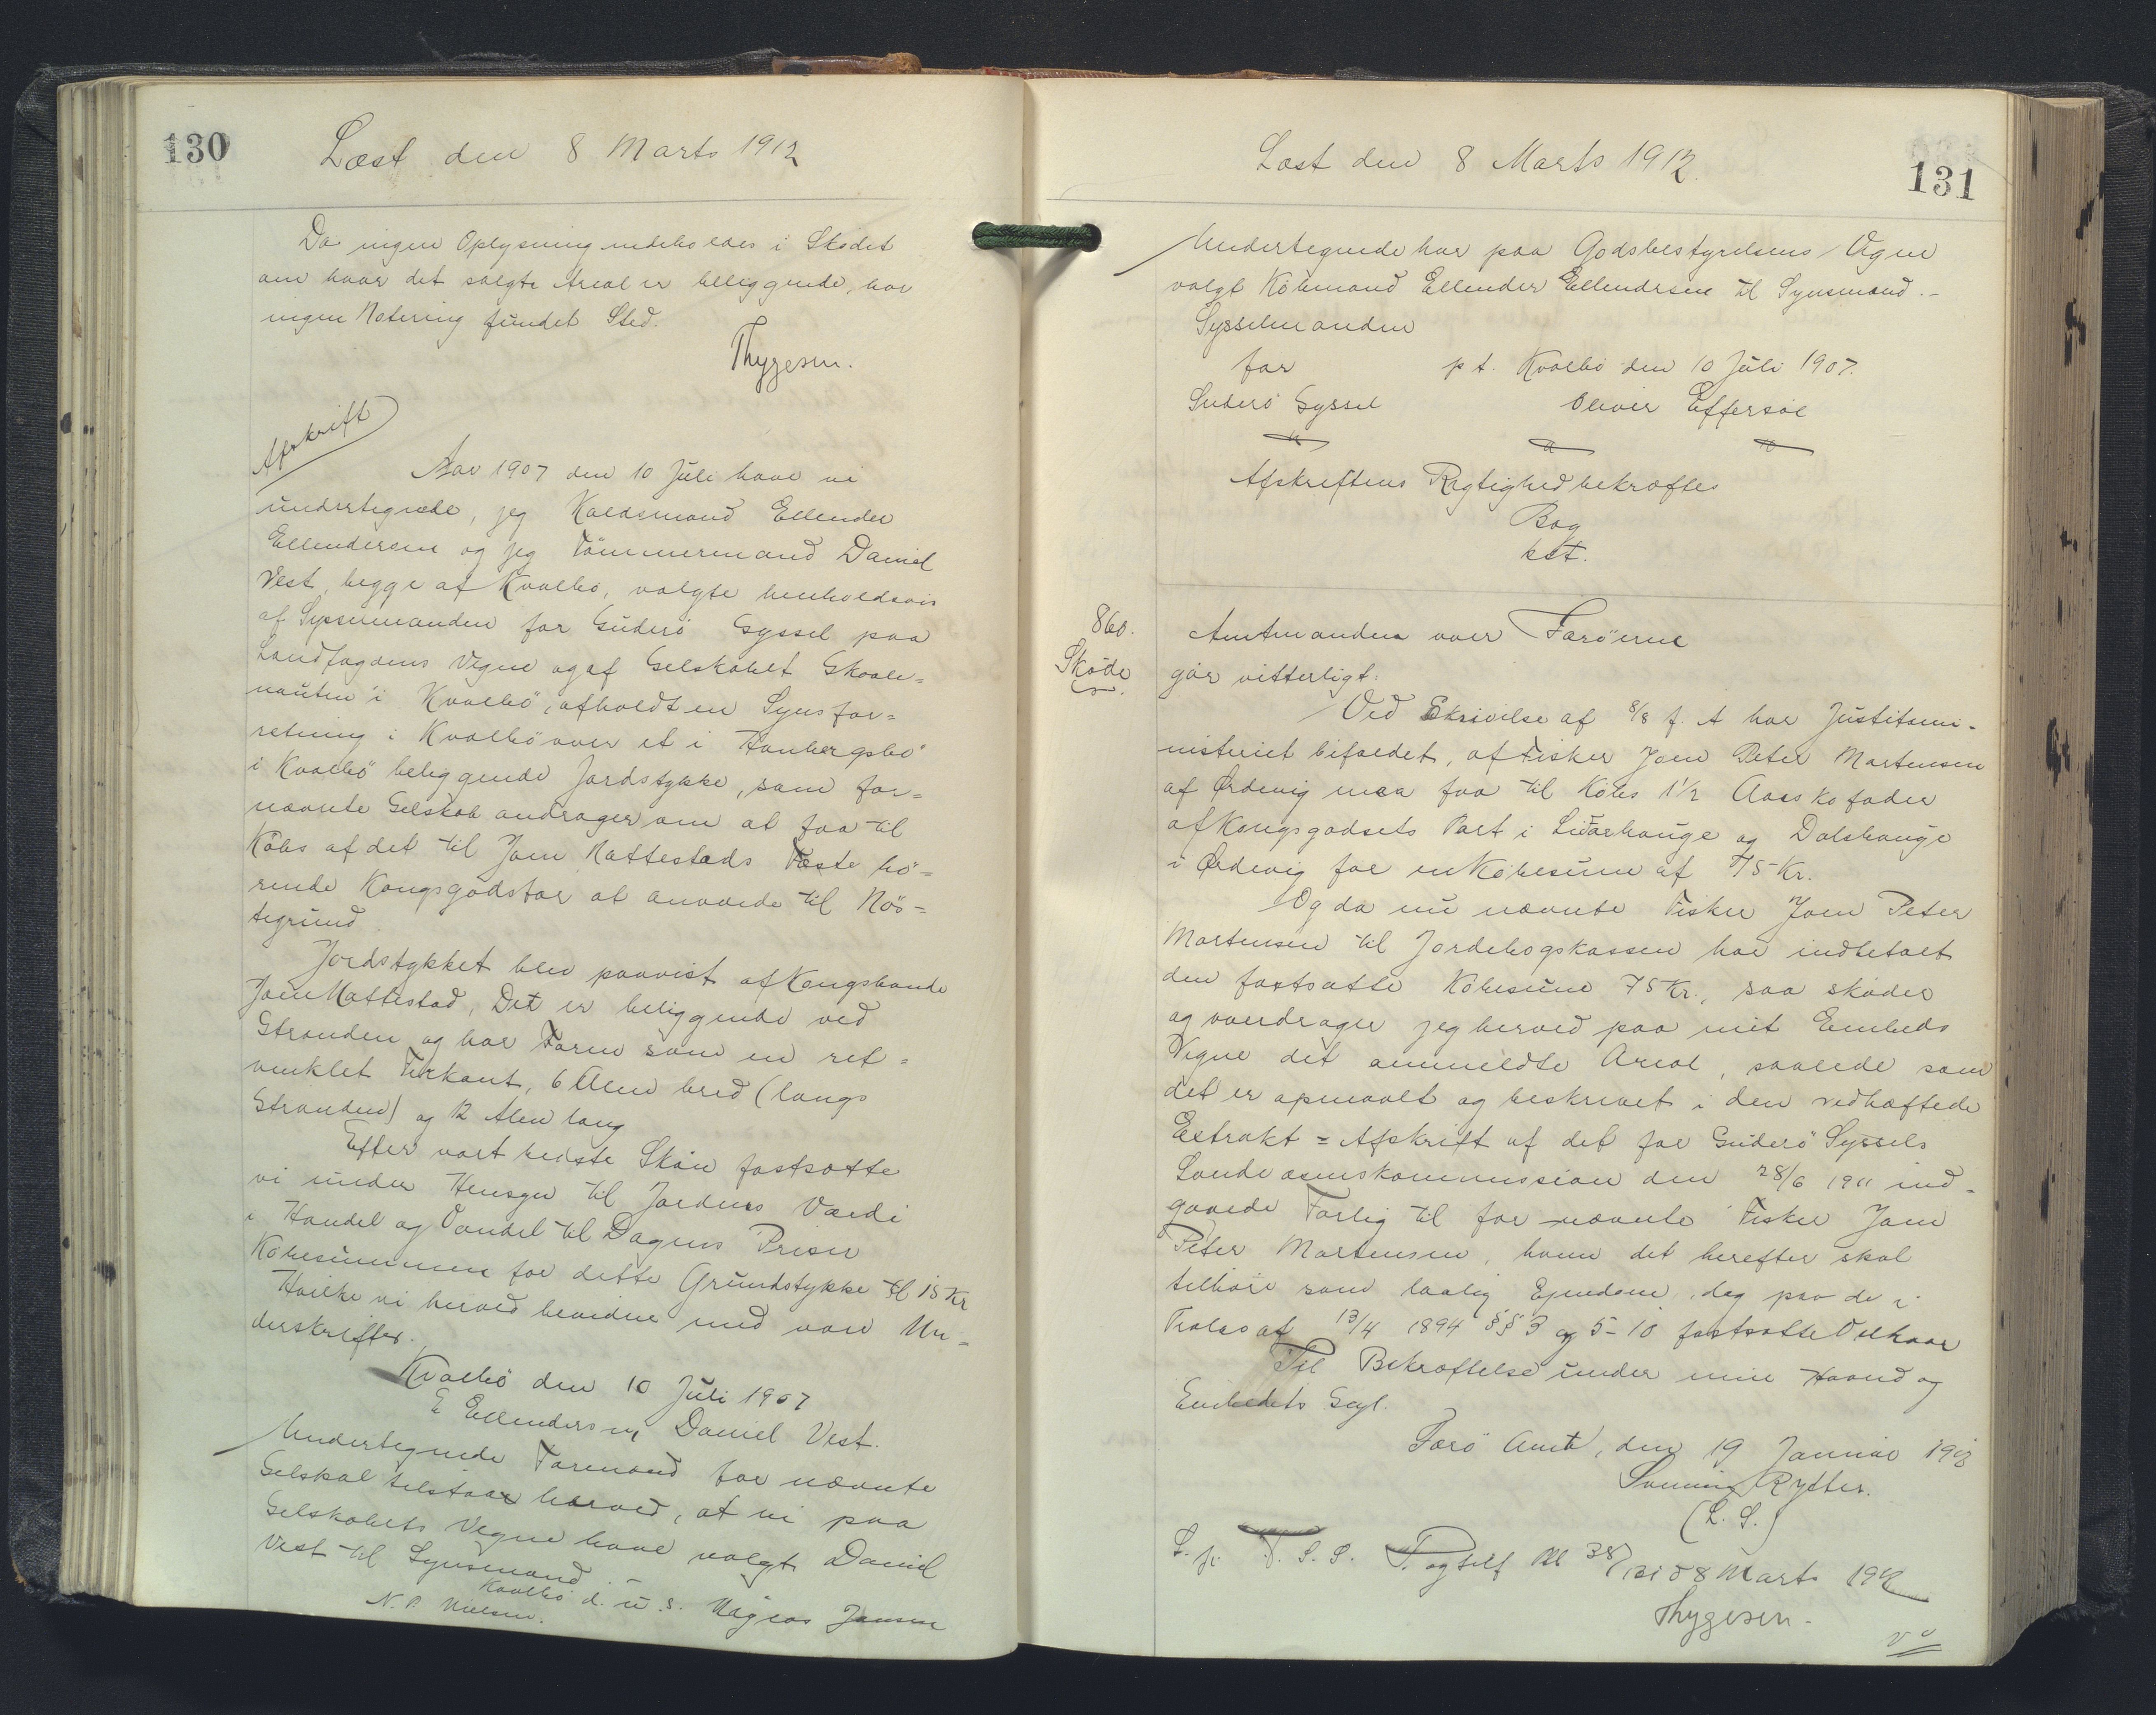 130
Læst den 8 Marts 1912
Da ingen Oplysning indeholdes i Skødet
om hvor det solgte Areal er beliggende, har
ingen Notering fundet Sted.
Thygesen.
Afskrift
Aar 1907 den 10 Juli have vi
undertegnede, jeg Ellender
Ellendersen og jeg Tömmermand Daniel
Vest, begge af Kvalbö, valgte henholdsvis
af Sysselmanden for Suderö Syssel paa
Landfogdens Vegne og af Selskabet Skaale=
nauten i Kvalbö", afholdt en Synsfor=
retning i Kvalbö over et i Hanbergsbö
i Kvalbö beliggende Jordstykke, som for=
nævnte Selskab andrager om at faa til
Köbs af det til Joen Nattestads Fæste hö=
rende Kongsgods for at anvende til Nös=
tegrund
Jordstykket blev paavist af Kongsbonde
Joen Nattestad, Det er beliggende ved
Stranden og har Form som en ret=
vinklet Firkant, 6 Alen bred (langs
Stranden) og 12 Alen lang
Efter vort bedste Skön fastsatte
vi under Hensyn til Jordens Værdi
i Handel og Vandel til Dagens Priser
Köbesummen for dette Grundstykke til 15 Kr
Hvilke vi herved bevidne med vore Un=
derskrifter.
Kvalbö den 10 Juli 1907
E Ellendersen, Daniel Vest.
Undertegnede Formænd for nævnte
Selskab tilstaar herved, at vi paa
Selskabets Vegne have valgt Daniel
Vest til Synsmand.
Kvalbö d. u. s. Jensen
N. P. Nielsen.
Læst den 8 Marts 1912.
131
Undertegnede har paa Godsbestyrelsens Vegne
valgt Köbmand Ellender Ellendersen til Synsmand.-
Sysselmanden
for p t. Kvalbö den 10 Juli 1907.
Suderö Syssel Oliver Effersöe
Afskriftens Rigtighed bekræftes
Bog
kst.
860.
Sköde
Amtmanden over Færöerne
gör vitterligt:
Ved Skrivelse af 8/8 f. A har Justitsmi-
nisteriet bifaldet, at Fisker Joen Peter Mortensen
af Ørdevig maa faa til Köbs 1½ Aars Kofoder
af Kongsgodsets Part i Lidarhauge og Dalshauge
i Ørdevig for en Köbesum af 75 Kr.
Og da nu nævnte Fisker Joen Peter
Mortensen til Jordebogskassen har indbetalt
den fastsatte Köbesum 75 Kr., saa sköder
og overdrager jeg herved paa mit Embeds
Vegne det ommeldte Areal, saaledes som
det er opmaalt og beskrevet i den vedhæftede
Extrakt = Afskrift af det for Suderö Syssels
Landvæsenskommission den 28/6 1911 ind-
gaaede Forlig til for nævnte Fisker Joen
Peter Mortensen, ham det herefter skal
tilhöre som lovlig Ejendom, dog paa de i
Frslov af 13/4 1894 §§ 3 og 5-10 fastsatte Vilkaar
Til Bekræftelse under min Haand og
Embedets Segl.
Færö Amt, den 19 Januar 1912
Svenning Rytter.
(L. S.)
8 Marts 1912
Thygesen.